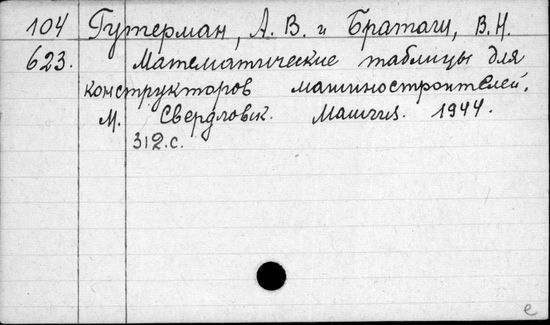 104 Гутерман, А. В. и Браташ, В. Н.
623. Математические таблицы для
конструкторов машиностроителей.
М. Свердловск. Машгиз. 1944.
312.с.
е